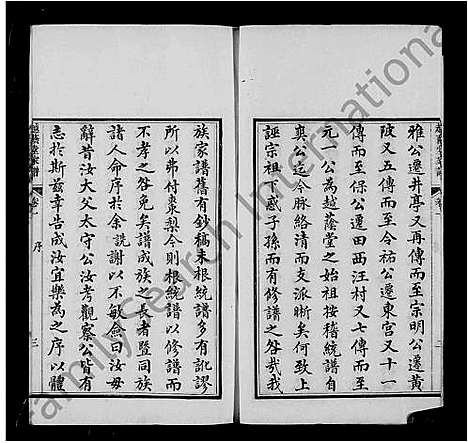 雅公遷井亭又再傳而至宗明公遷黃
陂又五傳而至今祐公遷東宮又十一
傳而至保公遷田西汪村又七傳而至
元一公為越蔭堂之始祖按稽統譜自
奐公迄今脉絡清而支派晰矣何敢上
誣宗祖下惑子孫而有修譜之咎哉我
族家譜舊有鈔稿未根統譜多有訛謬
所以弗付棗梨今則根統譜以修譜而
不孝之咎免矣譜成族之長者暨同族
諸人命序於余謝以不敏僉曰汝毋
辭昔汝大父太守公汝考觀察公皆有
志於斯茲幸告成汝宜樂為之序以體
越蔭堂家譜 卷一 序 三
FamilySearch International